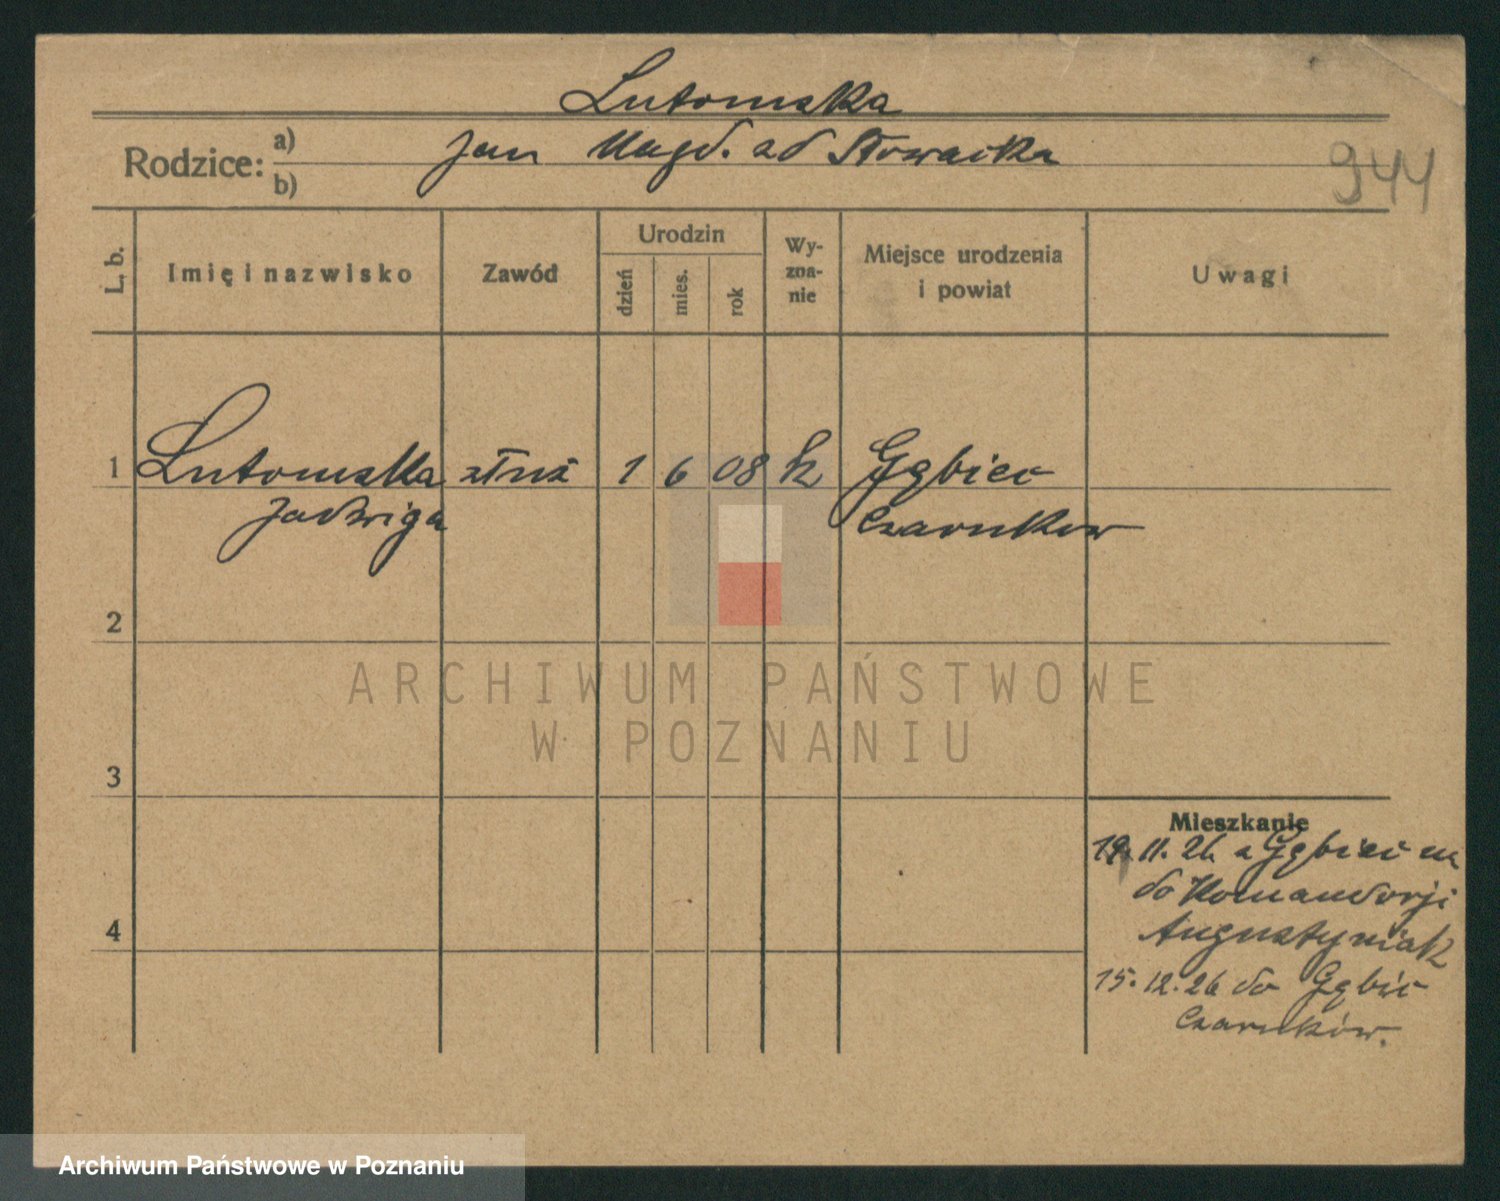 Lutomska
Rodzice: a) Jan Magd. zd Słowacka
b)
944
L. b.
Imię i nazwisko
Zawód
Urodzin
dzień
mies.
rok
Wy-
zna-
nie
Miejsce urodzenia
i powiat
Uwagi
1 Lutomska służ 1 6 08 k Gębice
Jadwiga Czarnkow
2
3
4
Mieszkanie
19. 11. 26 z Gębic
do Komandorji
Augustyniak
15. 12. 26 do Gębic
Czarnków.
ARCHIWUM PAŃSTWOWE
W POZNANIU
Archiwum Państwowe w Poznaniu